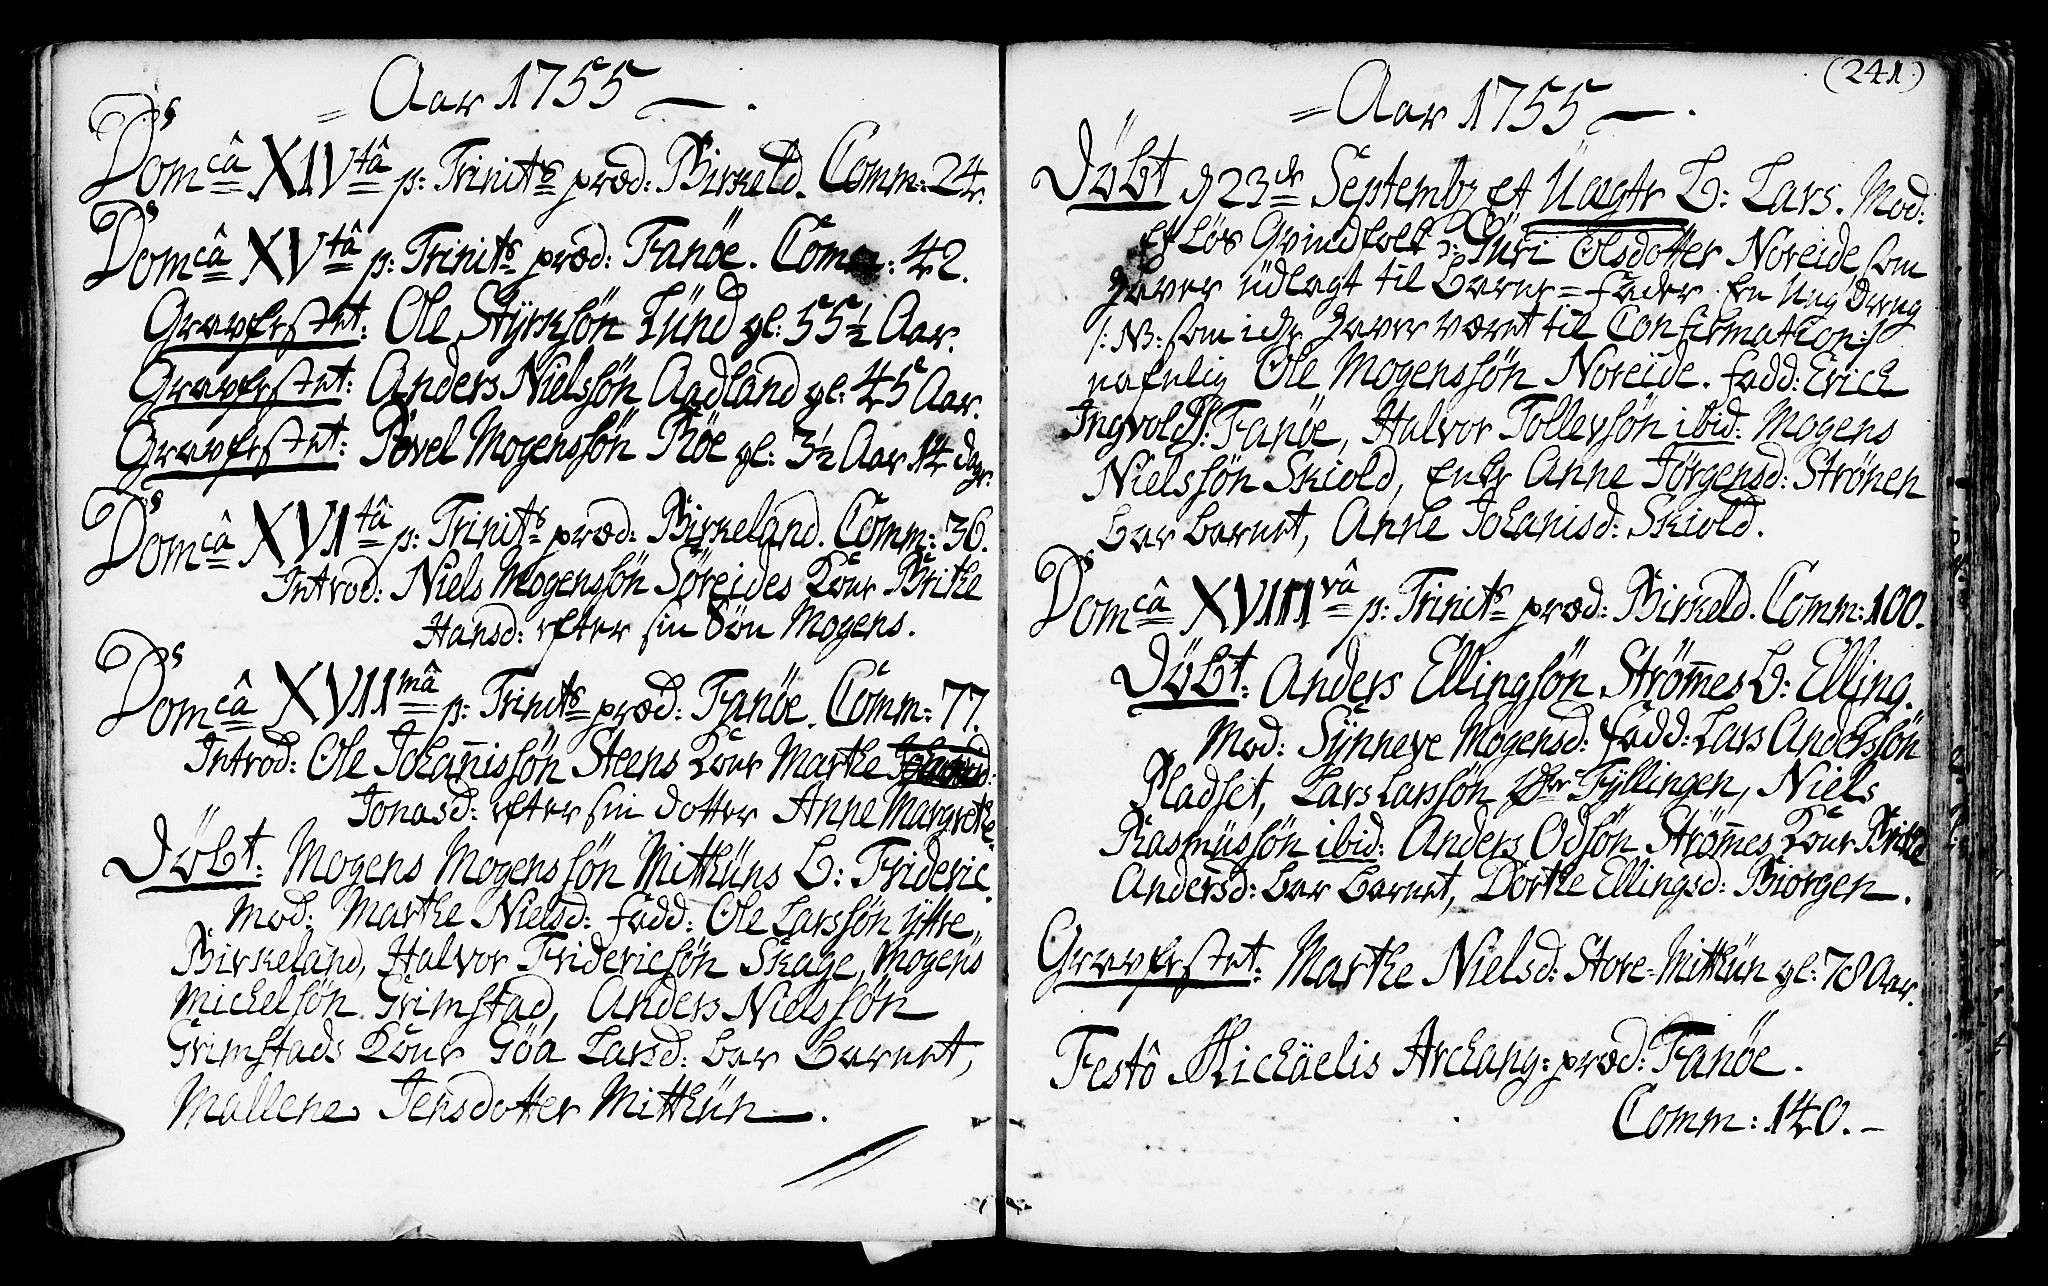 = Aar 1755 — .
Ds Domcâ XIVtâ p: Trinits præd: Birkeld. Comm: 24.
Ds Domcâ XVtâ p: Trinits præd: Fanöe. Com: 42.
Gravfæstet: Ole Styrksön Lünd gl: 55½ Aar.
Gravfæstet: Anders Nielssön Aadland gl: 45 Aar.
Gravfæstet: Povel Mogenssön Röe gl: 3½ Aar 14 dage.
Ds Domcâ XVItâ p: Trinits præd: Birkeland. Comm: 36.
Introd: Niels Mogenssön Söreides Kone Brithe
Hansd: efter sin Sön Mogens.
Ds Domcâ XVIImâ p: Trinits præd: Fanöe. Comm: 77.
Introd: Ole Johanissön Steens Kone Marthe
Jonasd: efter sin dotter Anne Margrethe.
Döbt: Mogens Mogenssön Mitthüns b: Frideric.
Mod: Marthe Nielsd: fadd: Ole Larssön ÿttre
Birkeland, Halvor Fridericsön Skage, Mogens
Michelsön Grimstad, Anders Nielssön
Grimstads Kone Göa Larsd: bar barnet,
Mallene Jensdotter Mitthün — .
(241.)
= Aar 1755 — .
Döbt d 23de Septembr et Uægte b: Lars. Mod:
et løs Qvindfolk ɔ: Güri Olsdotter Noreide som
haver üdlagt til barne=fader en Ung dreng
/: NB: som icke haver været til Confirmation :/
nafnlig Ole Mogenssön Noreide. fadd: Erich
Ingvolds: Fanöe, Halvor Tollevsön ibid: Mogens
Nielssön Skiold, Enke Anne Jörgensd: Strönen
bar barnet, Anne Johanisd: Skiold.
Ds Domcâ XVIIIvâ p: Trinits præd: Birkeld. Comm: 100.
Döbt: Anders Ellingsön Strömes b: Elling.
Mod: Synneve Mogensd: fadd: Lars Anderssön
Pladset, Lars Larssön Fyllingen, Niels
Rasmüssön ibid: Anders Odsön Strömes Kone Brithe
Andersd: bar barnet, Dorthe Ellingsd: Biorgen.
Gravfæstet: Marthe Nielsd: Store=Mitthün gl: 78 Aar.
Festô Michäelis Archang: præd: Fanöe.
Comm: 140. –